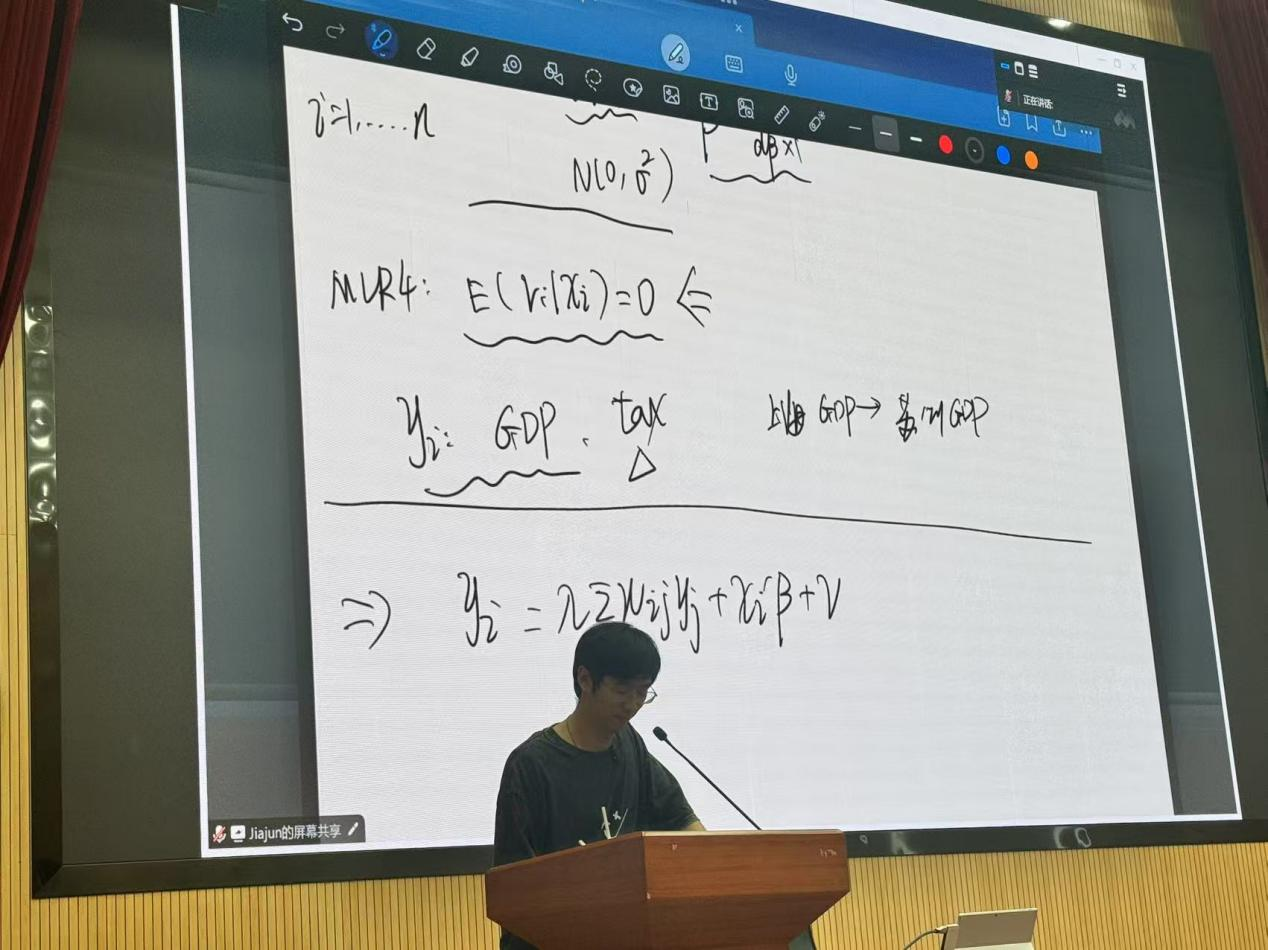 正在讲话:
i=1,.....n
N(0, σ²)
dβ×1
MLR4: E(vi|xi)=0 ⇐
yi: GDP、tax
GDP→ GDP
△
⇒ yi = λΣwijyj+xi'β+v
Jiajun的屏幕共享